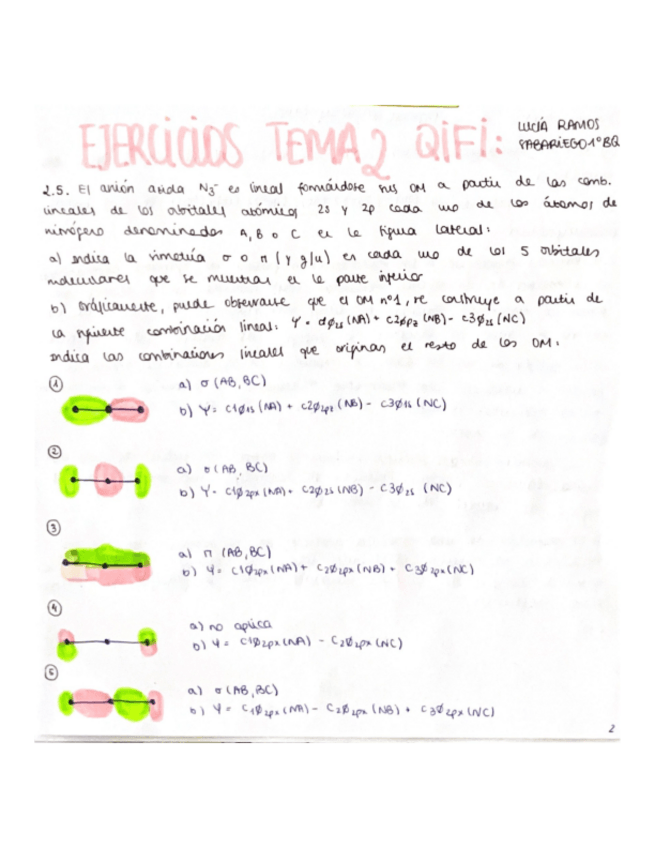 EJERCICIOS TEMA 2 QIFI:
LUCÍA RAMOS
SABARIEGO 1º BQ
2.5. El anión azida N₃⁻ es lineal formándose sus OM a partir de las comb.
lineales de los orbitales atómicos 2s y 2p cada uno de los átomos de
nitrógeno denominados A, B o C en la figura lateral:
a) indica la simetría σ o π (y g/u) en cada uno de los 5 orbitales
moleculares que se muestran en la parte inferior
b) Gráficamente, puede observarse que el OM nº1, se construye a partir de
la siguiente combinación lineal: Ψ = c1ϕ2s (NA) + c2ϕp2 (NB) - c3ϕ2s (NC)
indica las combinaciones lineales que originan el resto de los OM:
①
a) σ (AB, BC)
b) Ψ = c1ϕ1s (NA) + c2ϕ2pz (NB) - c3ϕ1s (NC)
②
a) σ (AB, BC)
b) Ψ = c1ϕ2px (NA) - c2ϕ2s (NB) - c3ϕ2s (NC)
③
a) π (AB, BC)
b) Ψ = c1ϕ2px (NA) + c2ϕ2px (NB) + c3ϕ2px (NC)
④
a) no aplica
b) Ψ = c1ϕ2px (NA) - c2ϕ2px (NC)
⑤
a) σ (AB, BC)
b) Ψ = c1ϕ2px (NA) - c2ϕ2px (NB) + c3ϕ2px (NC)
2